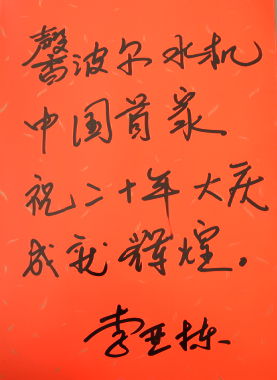 馨波尔水机
中国首家
祝二十年大庆
成就辉煌。
李亚栋